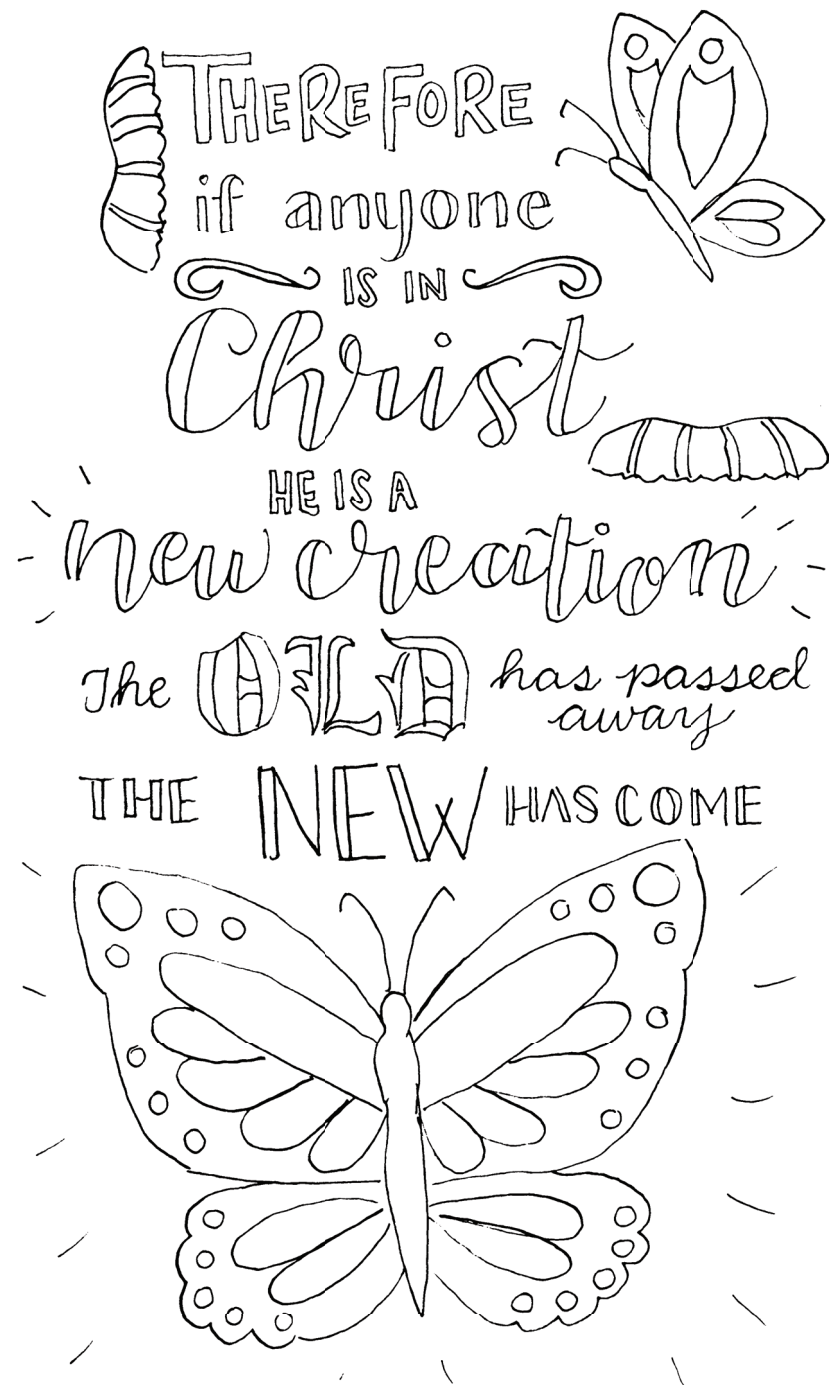 THEREFORE
if anyone
IS IN
Christ
HE IS A
new creation
The OLD has passed
away
THE NEW HAS COME